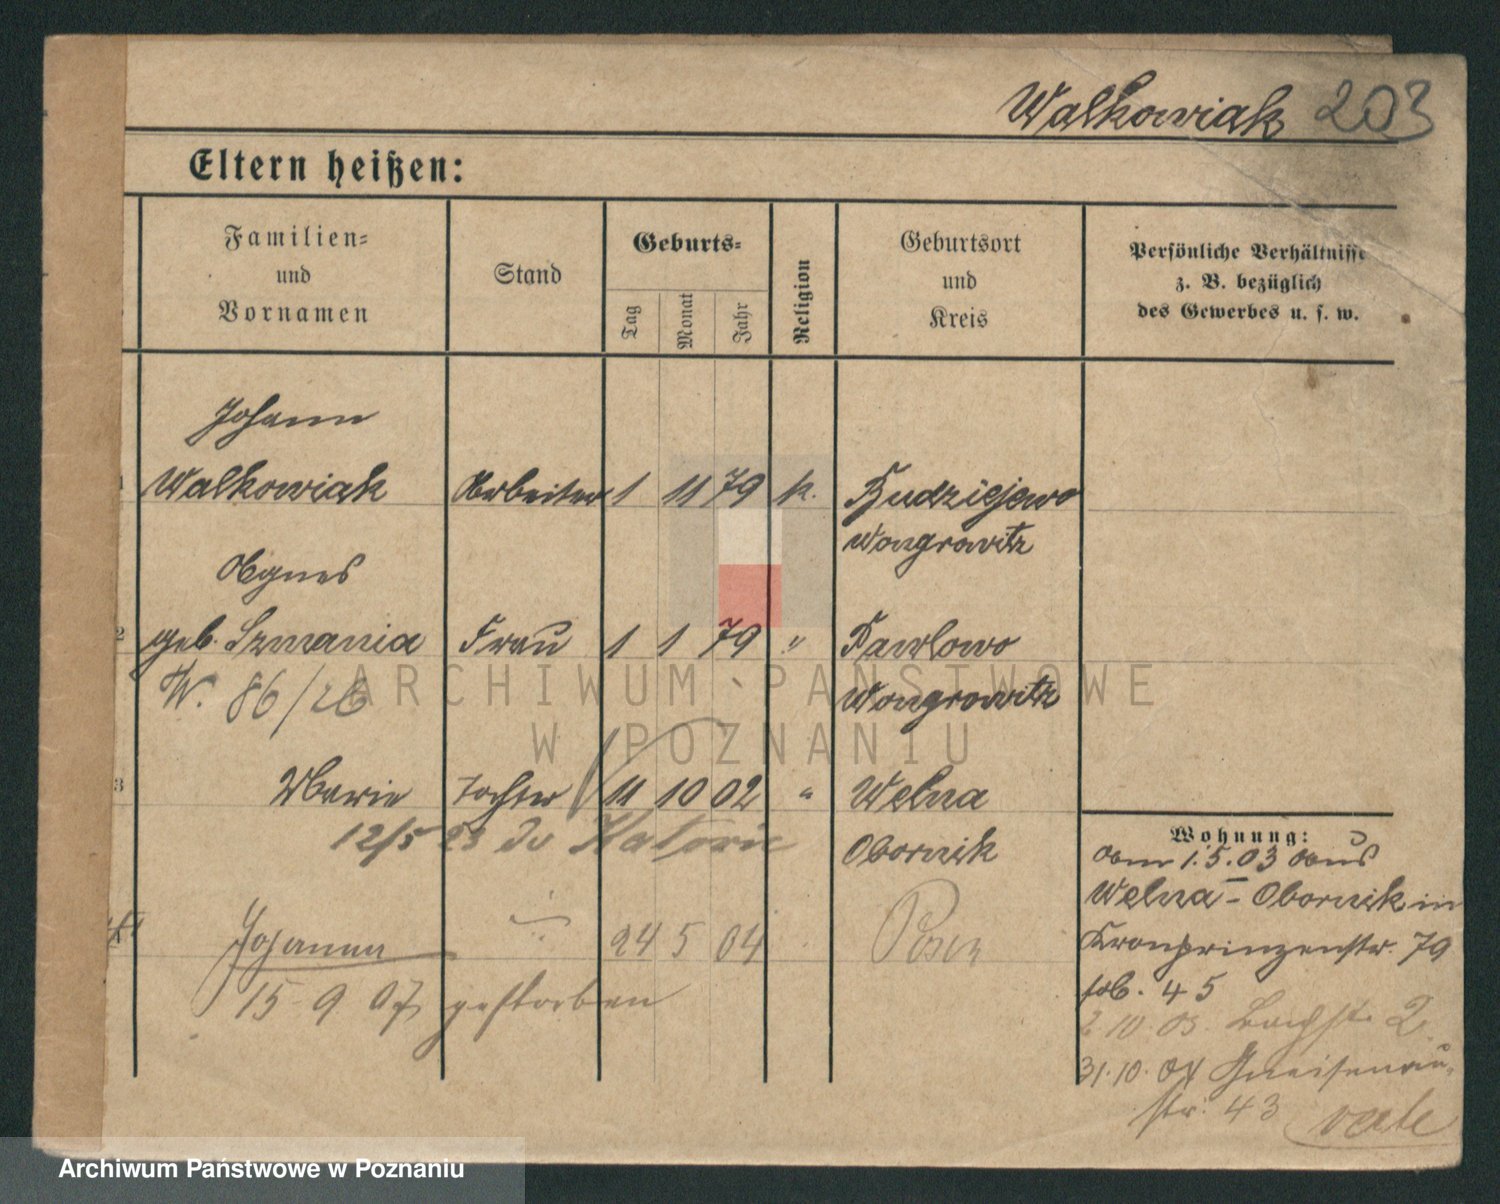 Walkowiak 203
Eltern heißen:
Familien-
und
Vornamen
Stand
Geburts-
Tag
Monat
Jahr
Religion
Geburtsort
und
Kreis
Persönliche Verhältnisse
z. B. bezüglich
des Gewerbes u. s. w.
Johann
1 Walkowiak Arbeiter 1 11 79 k. Budziejewo
Wongrowitz
Agnes
2 geb. Szmania Frau 1 1 79 " Pawlowo
W. 86/26 Wongrowitz
3 Marie Tochter 11 10 02 " Welna
12/5 23 Obornik
Johanna 24 5 04 Posen
15 9 07 gestorben
Wohnung:
am 1.5.03 aus
Welna - Obornik in
Kronprinzenstr. 79
45
2.10.03. Bachstr. 2
31.10.04 Gneisenau-
str. 43 verte
ARCHIWUM PAŃSTWOWE
W POZNANIU
Archiwum Państwowe w Poznaniu